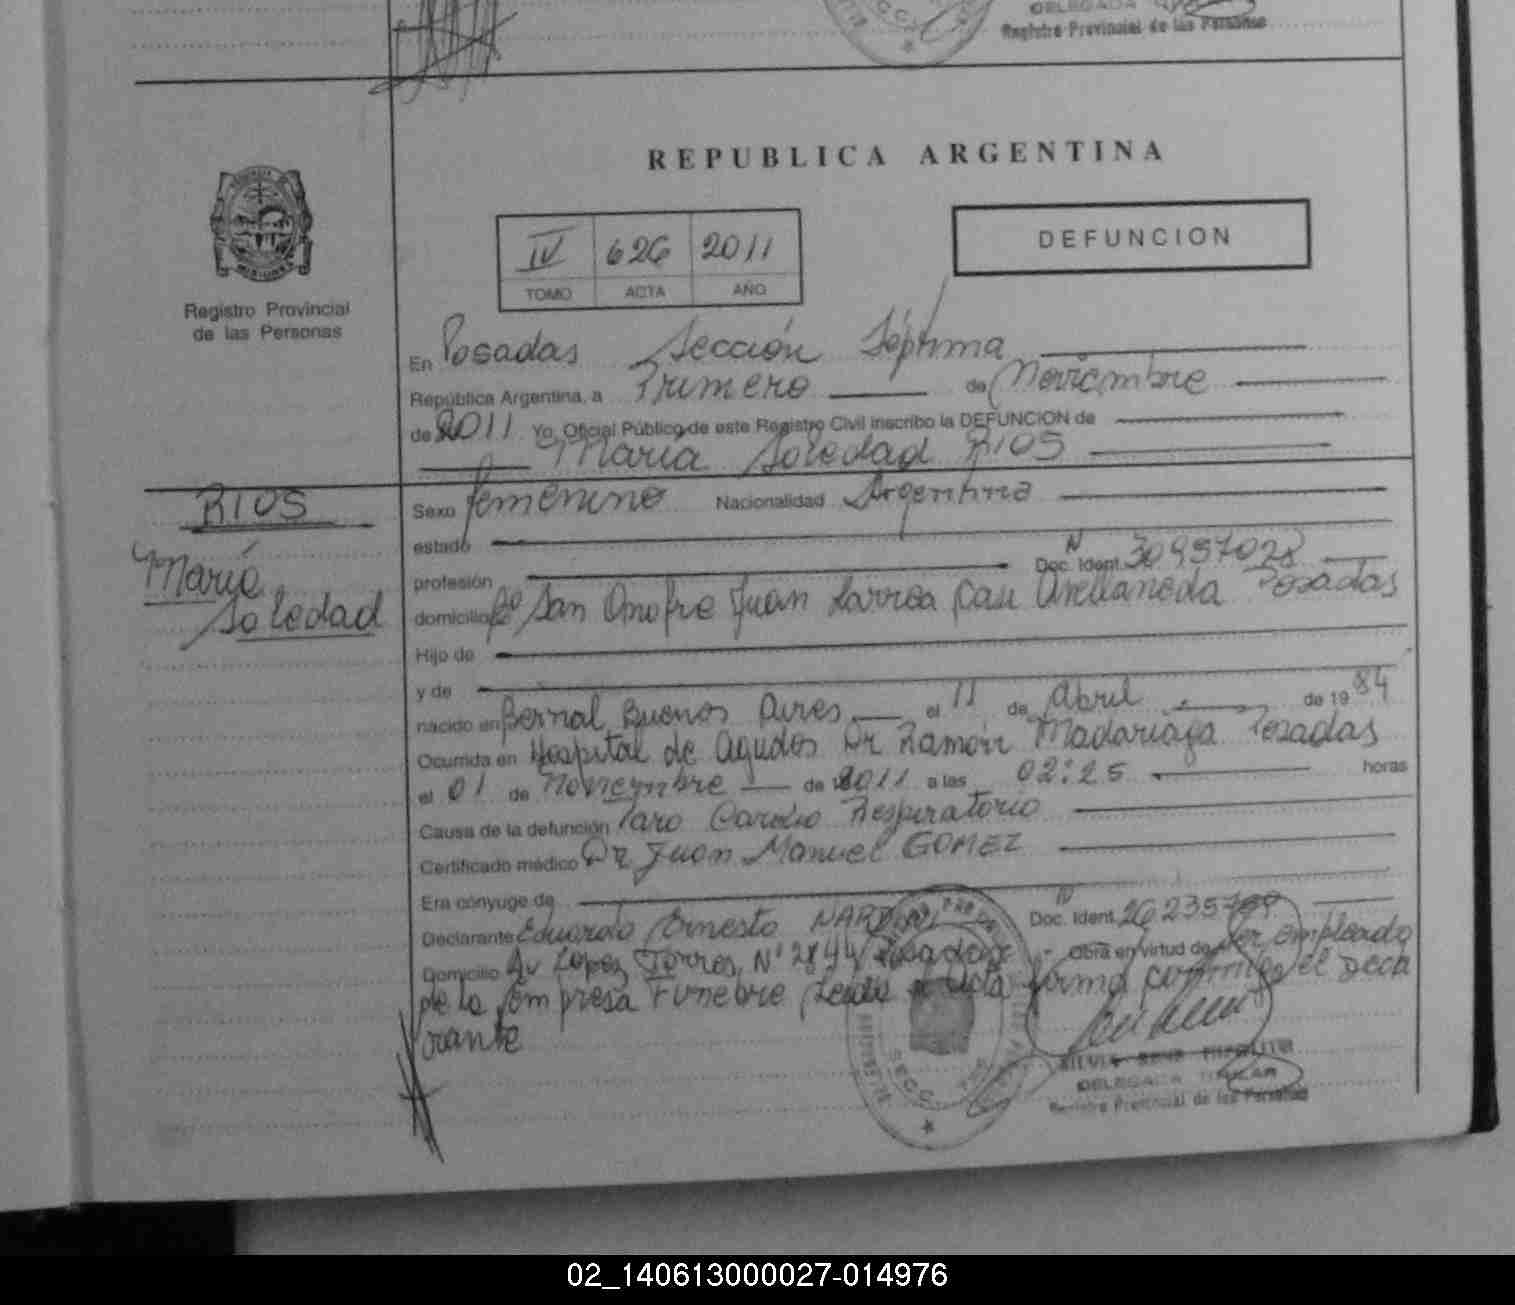 DELEGADA
Registro Provincial de las Personas
REPUBLICA ARGENTINA
IV 626 2011
TOMO ACTA AÑO
DEFUNCION
Registro Provincial
de las Personas
En Posadas Sección Séptima
República Argentina, a Primero de Noviembre
de 2011 Yo, Oficial Público de este Registro Civil inscribo la DEFUNCION de
María Soledad RIOS
RIOS
María
Soledad
Sexo femenino Nacionalidad Argentina
estado
profesión Doc. Ident. N 30957028
domicilio Bº San Onofre Juan Larrea casi Avellaneda Posadas
Hijo de
y de
nacido en Bernal Buenos Aires el 11 de Abril de 1984
Ocurrida en Hospital de Agudos Dr Ramón Madariaga Posadas
el 01 de Noviembre de 2011 a las 02:25 horas
Causa de la defunción Paro Cardio Respiratorio
Certificado médico Dr Juan Manuel GOMEZ
Era cónyuge de
Declarante Eduardo Ernesto Doc. Ident. N
Domicilio Av Lopez Torres Nº 2844 Posadas - Obra en virtud de ser empleado
de la Empresa Funebre Leida el Acta firma conmigo el Decla
rante
DELEGADA TITULAR
Registro Provincial de las Personas
02_140613000027-014976